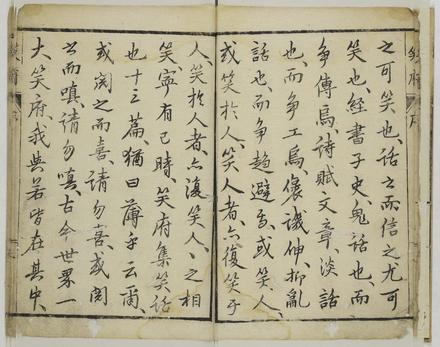 之可笑也、話之而信之尤可
笑也、經書子史、鬼話也、而
爭傳焉、詩賦文章、淡話
也、而爭工焉、褒譏伸抑、亂
話也、而爭趨避焉、或笑人、
或笑於人、笑人者、亦復笑于
人、笑於人者、亦復笑人、〻之相
笑寧有已時、笑府集笑話
也、十三篇、猶曰薄乎云爾、
或閱之而喜、請勿喜、或閱
之而嗔、請勿嗔、古今世界一
大笑府、我與若皆在其中、